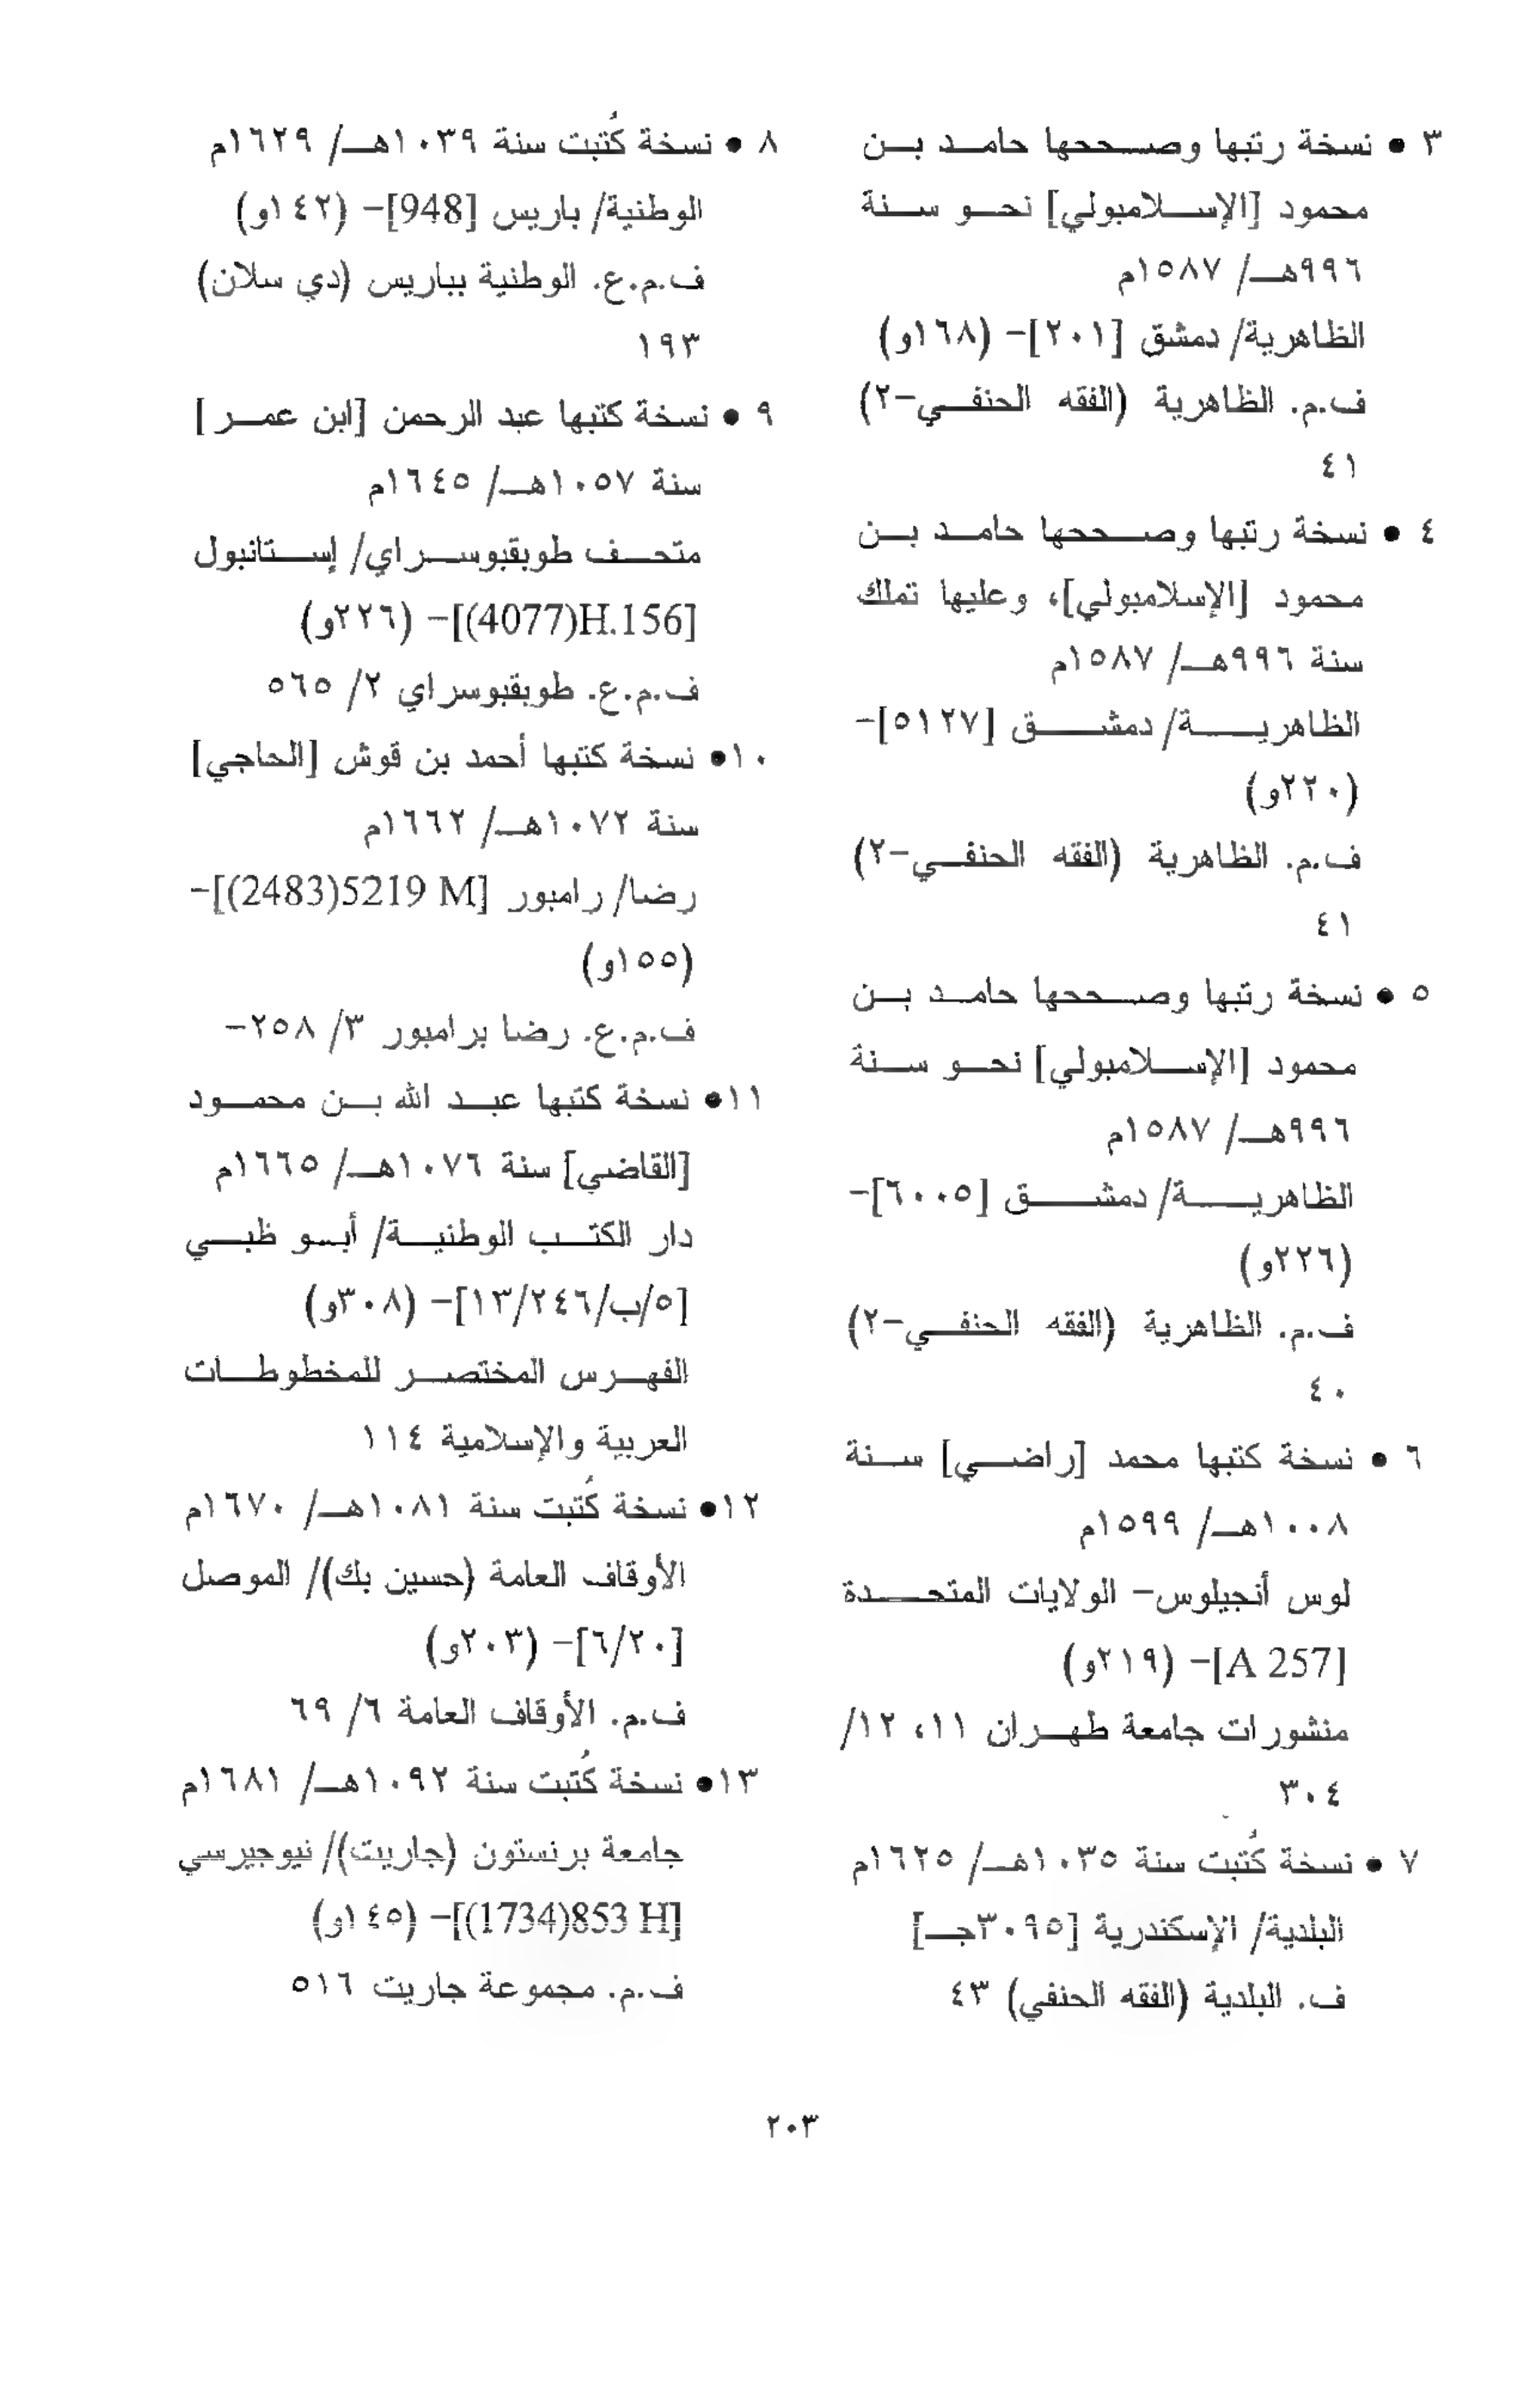 ٣ • نسخة رتبها وصححها حامد بن
محمود [الإسلامبولي] نحو سنة
٩٩٦هـ/ ١٥٨٧م
الظاهرية/ دمشق [٢٠١]- (١٦٨و)
ف.م. الظاهرية (الفقه الحنفي-٢)
٤١
٤ • نسخة رتبها وصححها حامد بن
محمود [الإسلامبولي]، وعليها تملك
سنة ٩٩٦هـ/ ١٥٨٧م
الظاهرية/ دمشق [٥١٢٧]-
(٢٢٠و)
ف.م. الظاهرية (الفقه الحنفي-٢)
٤١
٥ • نسخة رتبها وصححها حامد بن
محمود [الإسلامبولي] نحو سنة
٩٩٦هـ/ ١٥٨٧م
الظاهرية/ دمشق [٦٠٠٥]-
(٢٢٦و)
ف.م. الظاهرية (الفقه الحنفي-٢)
٤٠
٦ • نسخة كتبها محمد [راضي] سنة
١٠٠٨هـ/ ١٥٩٩م
لوس أنجيلوس- الولايات المتحدة
[A 257]- (٢١٩و)
منشورات جامعة طهران ١١، ١٢/
٣٠٤
٧ • نسخة كُتبت سنة ١٠٣٥هـ/ ١٦٢٥م
البلدية/ الإسكندرية [٣٠٩٥جـ]
ف. البلدية (الفقه الحنفي) ٤٣
٨ • نسخة كُتبت سنة ١٠٣٩هـ/ ١٦٢٩م
الوطنية/ باريس [948]- (١٤٢و)
ف.م.ع. الوطنية بباريس (دي سلان)
١٩٣
٩ • نسخة كتبها عبد الرحمن [ابن عمر]
سنة ١٠٥٧هـ/ ١٦٤٥م
متحف طوبقبوسراي/ إستانبول
[H.156(4077)]- (٢٢٦و)
ف.م.ع. طوبقبوسراي ٢/ ٥٦٥
١٠• نسخة كتبها أحمد بن قوش [الحاجي]
سنة ١٠٧٢هـ/ ١٦٦٢م
رضا/ رامبور [5219 M(2483)]-
(١٥٥و)
ف.م.ع. رضا برامبور ٣/ ٢٥٨-
١١• نسخة كتبها عبد الله بن محمود
[القاضي] سنة ١٠٧٦هـ/ ١٦٦٥م
دار الكتب الوطنية/ أبو ظبي
[٥/ب/١٣/٢٤٦]- (٣٠٨و)
الفهرس المختصر للمخطوطات
العربية والإسلامية ١١٤
١٢• نسخة كُتبت سنة ١٠٨١هـ/ ١٦٧٠م
الأوقاف العامة (حسين بك)/ الموصل
[٦/٢٠]- (٢٠٣و)
ف.م. الأوقاف العامة ٦/ ٦٩
١٣• نسخة كُتبت سنة ١٠٩٢هـ/ ١٦٨١م
جامعة برنستون (جاريت)/ نيوجيرسي
[853 H(1734)]- (١٤٥و)
ف.م. مجموعة جاريت ٥١٦
٢٠٣